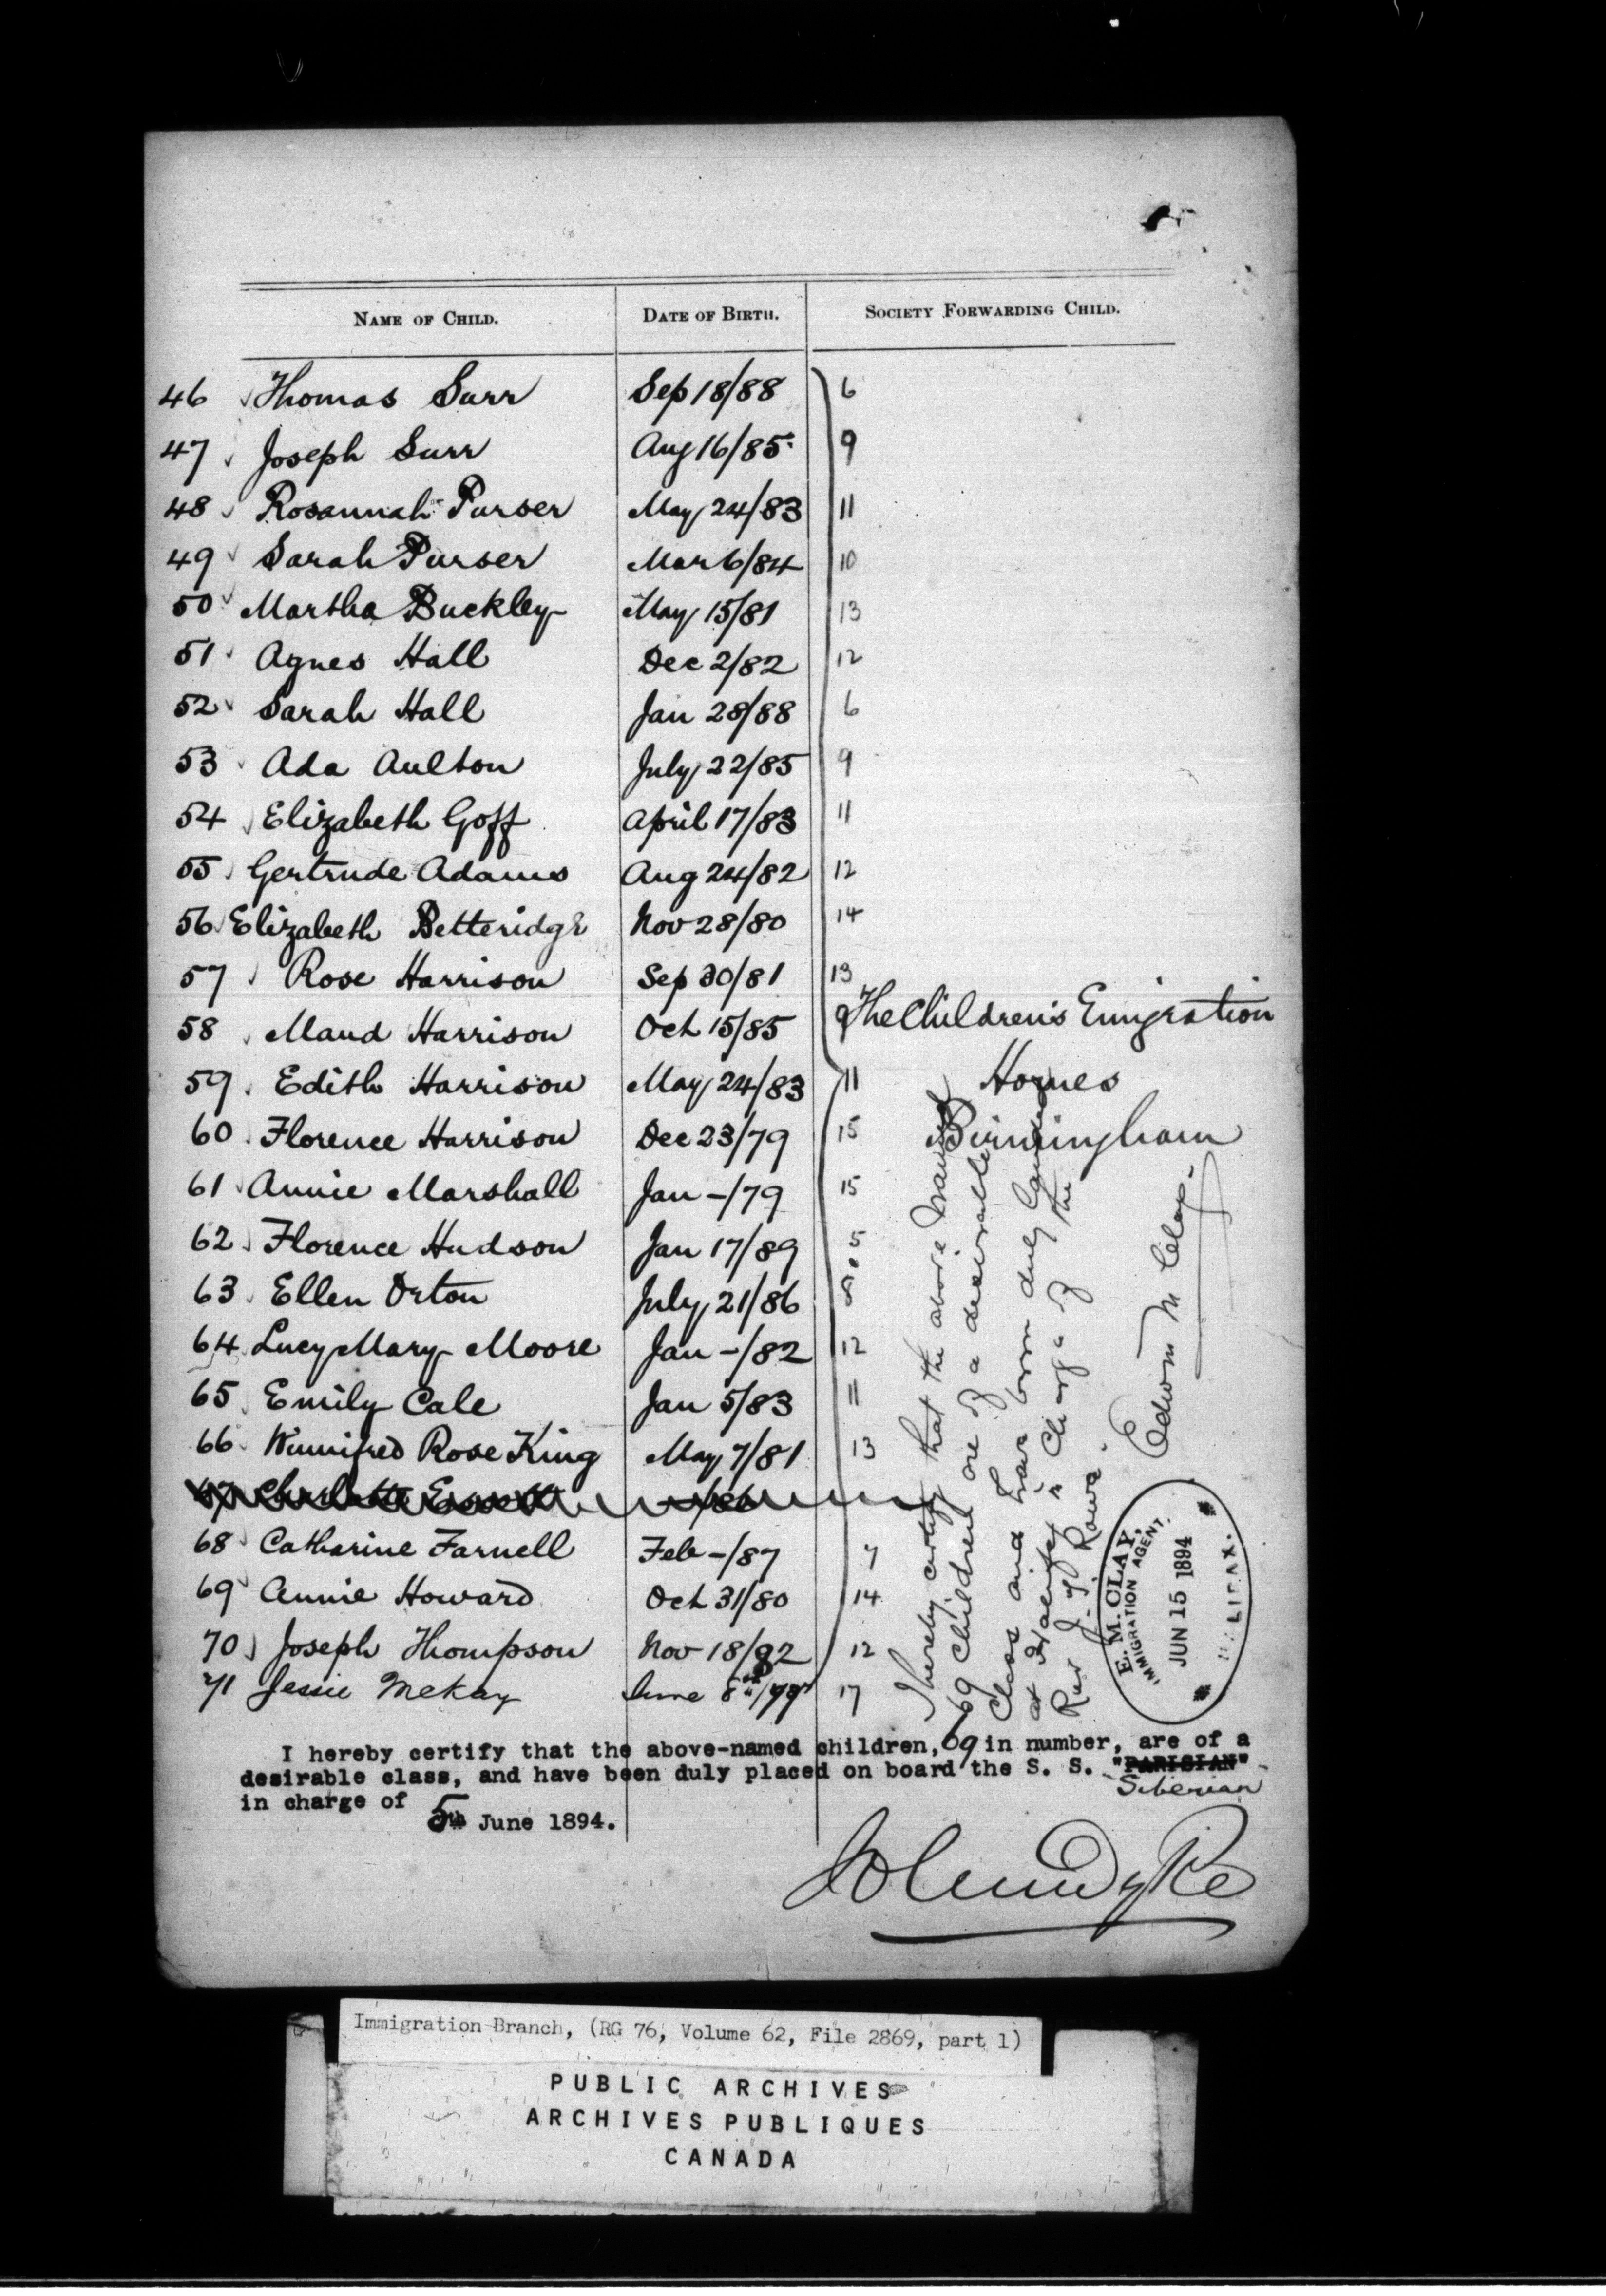 NAME OF CHILD. DATE OF BIRTH. SOCIETY FORWARDING CHILD.
46 Thomas Surr Sep 18/88 6
47 Joseph Surr Aug 16/85 9
48 Rosannah Purser May 24/83 11
49 Sarah Purser Mar 6/84 10
50 Martha Buckley May 15/81 13
51 Agnes Hall Dec 2/82 12
52 Sarah Hall Jan 28/88 6
53 Ada Aulton July 22/85 9
54 Elizabeth Goff April 17/83 11
55 Gertrude Adams Aug 24/82 12
56 Elizabeth Betteridge Nov 28/80 14
57 Rose Harrison Sep 30/81 13
58 Maud Harrison Oct 15/85 9 The Children's Emigration
59 Edith Harrison May 24/83 11 Homes
60 Florence Harrison Dec 23/79 15 Birmingham
61 Annie Marshall Jan -/79 15
62 Florence Hudson Jan 17/89 5
63 Ellen Orton July 21/86 8
64 Lucy Mary Moore Jan -/82 12
65 Emily Cale Jan 5/83 11
66 Winnifred Rose King May 7/81 13
67 Charlotte -/86
68 Catharine Farnell Feb -/87 7
69 Annie Howard Oct 31/80 14
70 Joseph Thompson Nov 18/82 12
71 Jessie McKay June 8th/77 17
I hereby certify that the above named
69 children are of a desirable
class and have been duly landed
at Halifax in charge of the
Rev J. of Rowe.
Edwin M Clay-
E. M. CLAY,
IMMIGRATION AGENT.
JUN 15 1894
HALIFAX.
I hereby certify that the above-named children, 69 in number, are of a
desirable class, and have been duly placed on board the S. S. "PARISIAN"
Siberian
in charge of
5th June 1894.
Immigration Branch, (RG 76, Volume 62, File 2869, part 1)
PUBLIC ARCHIVES
ARCHIVES PUBLIQUES
CANADA